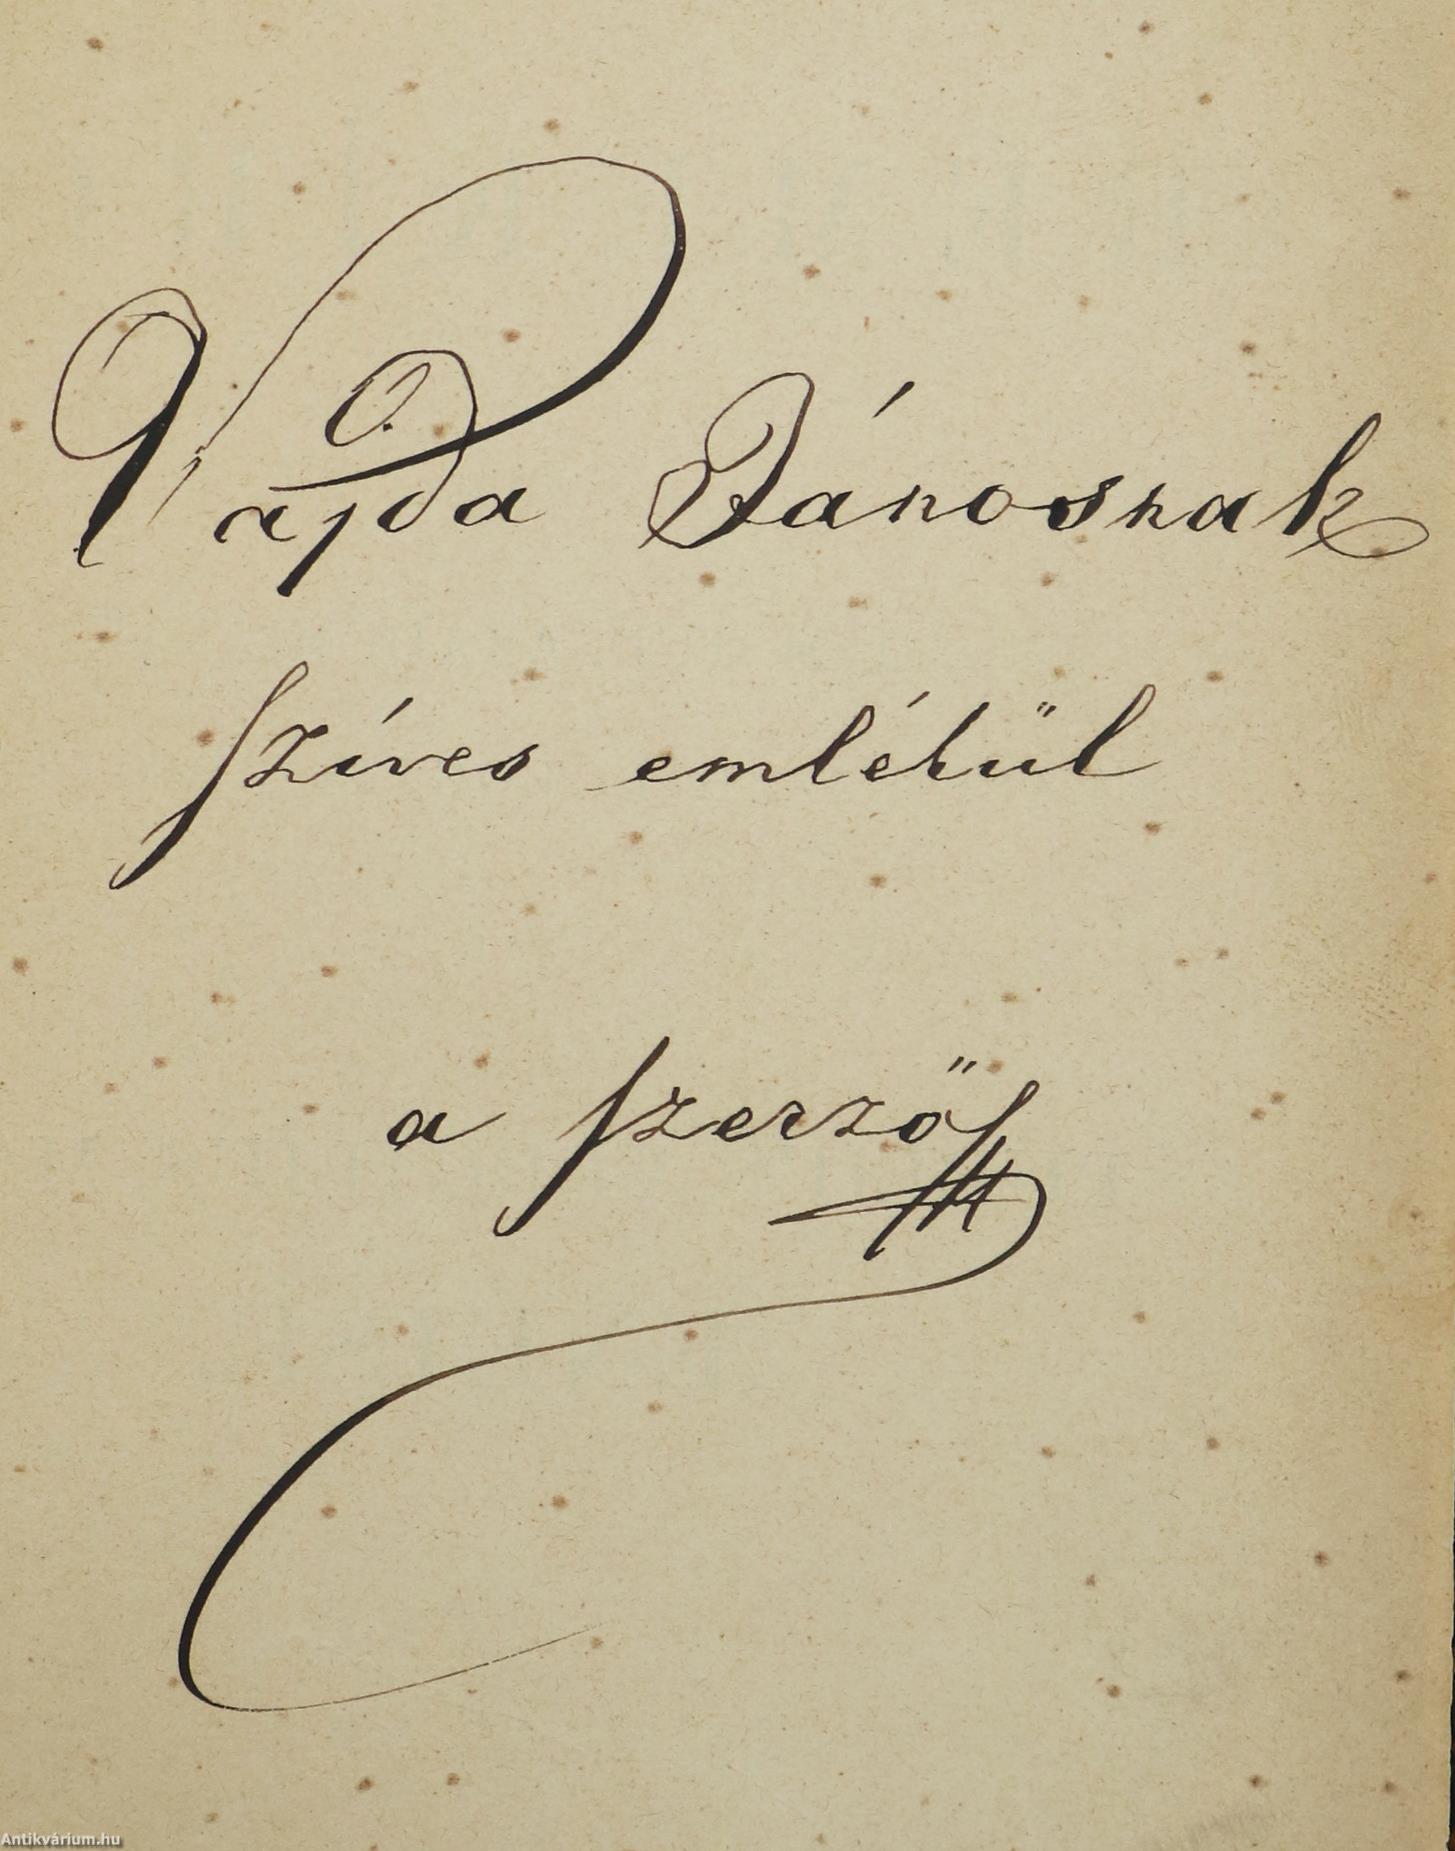 Vajda Jánosnak
szíves emlékül
a szerző
Antikvárium.hu